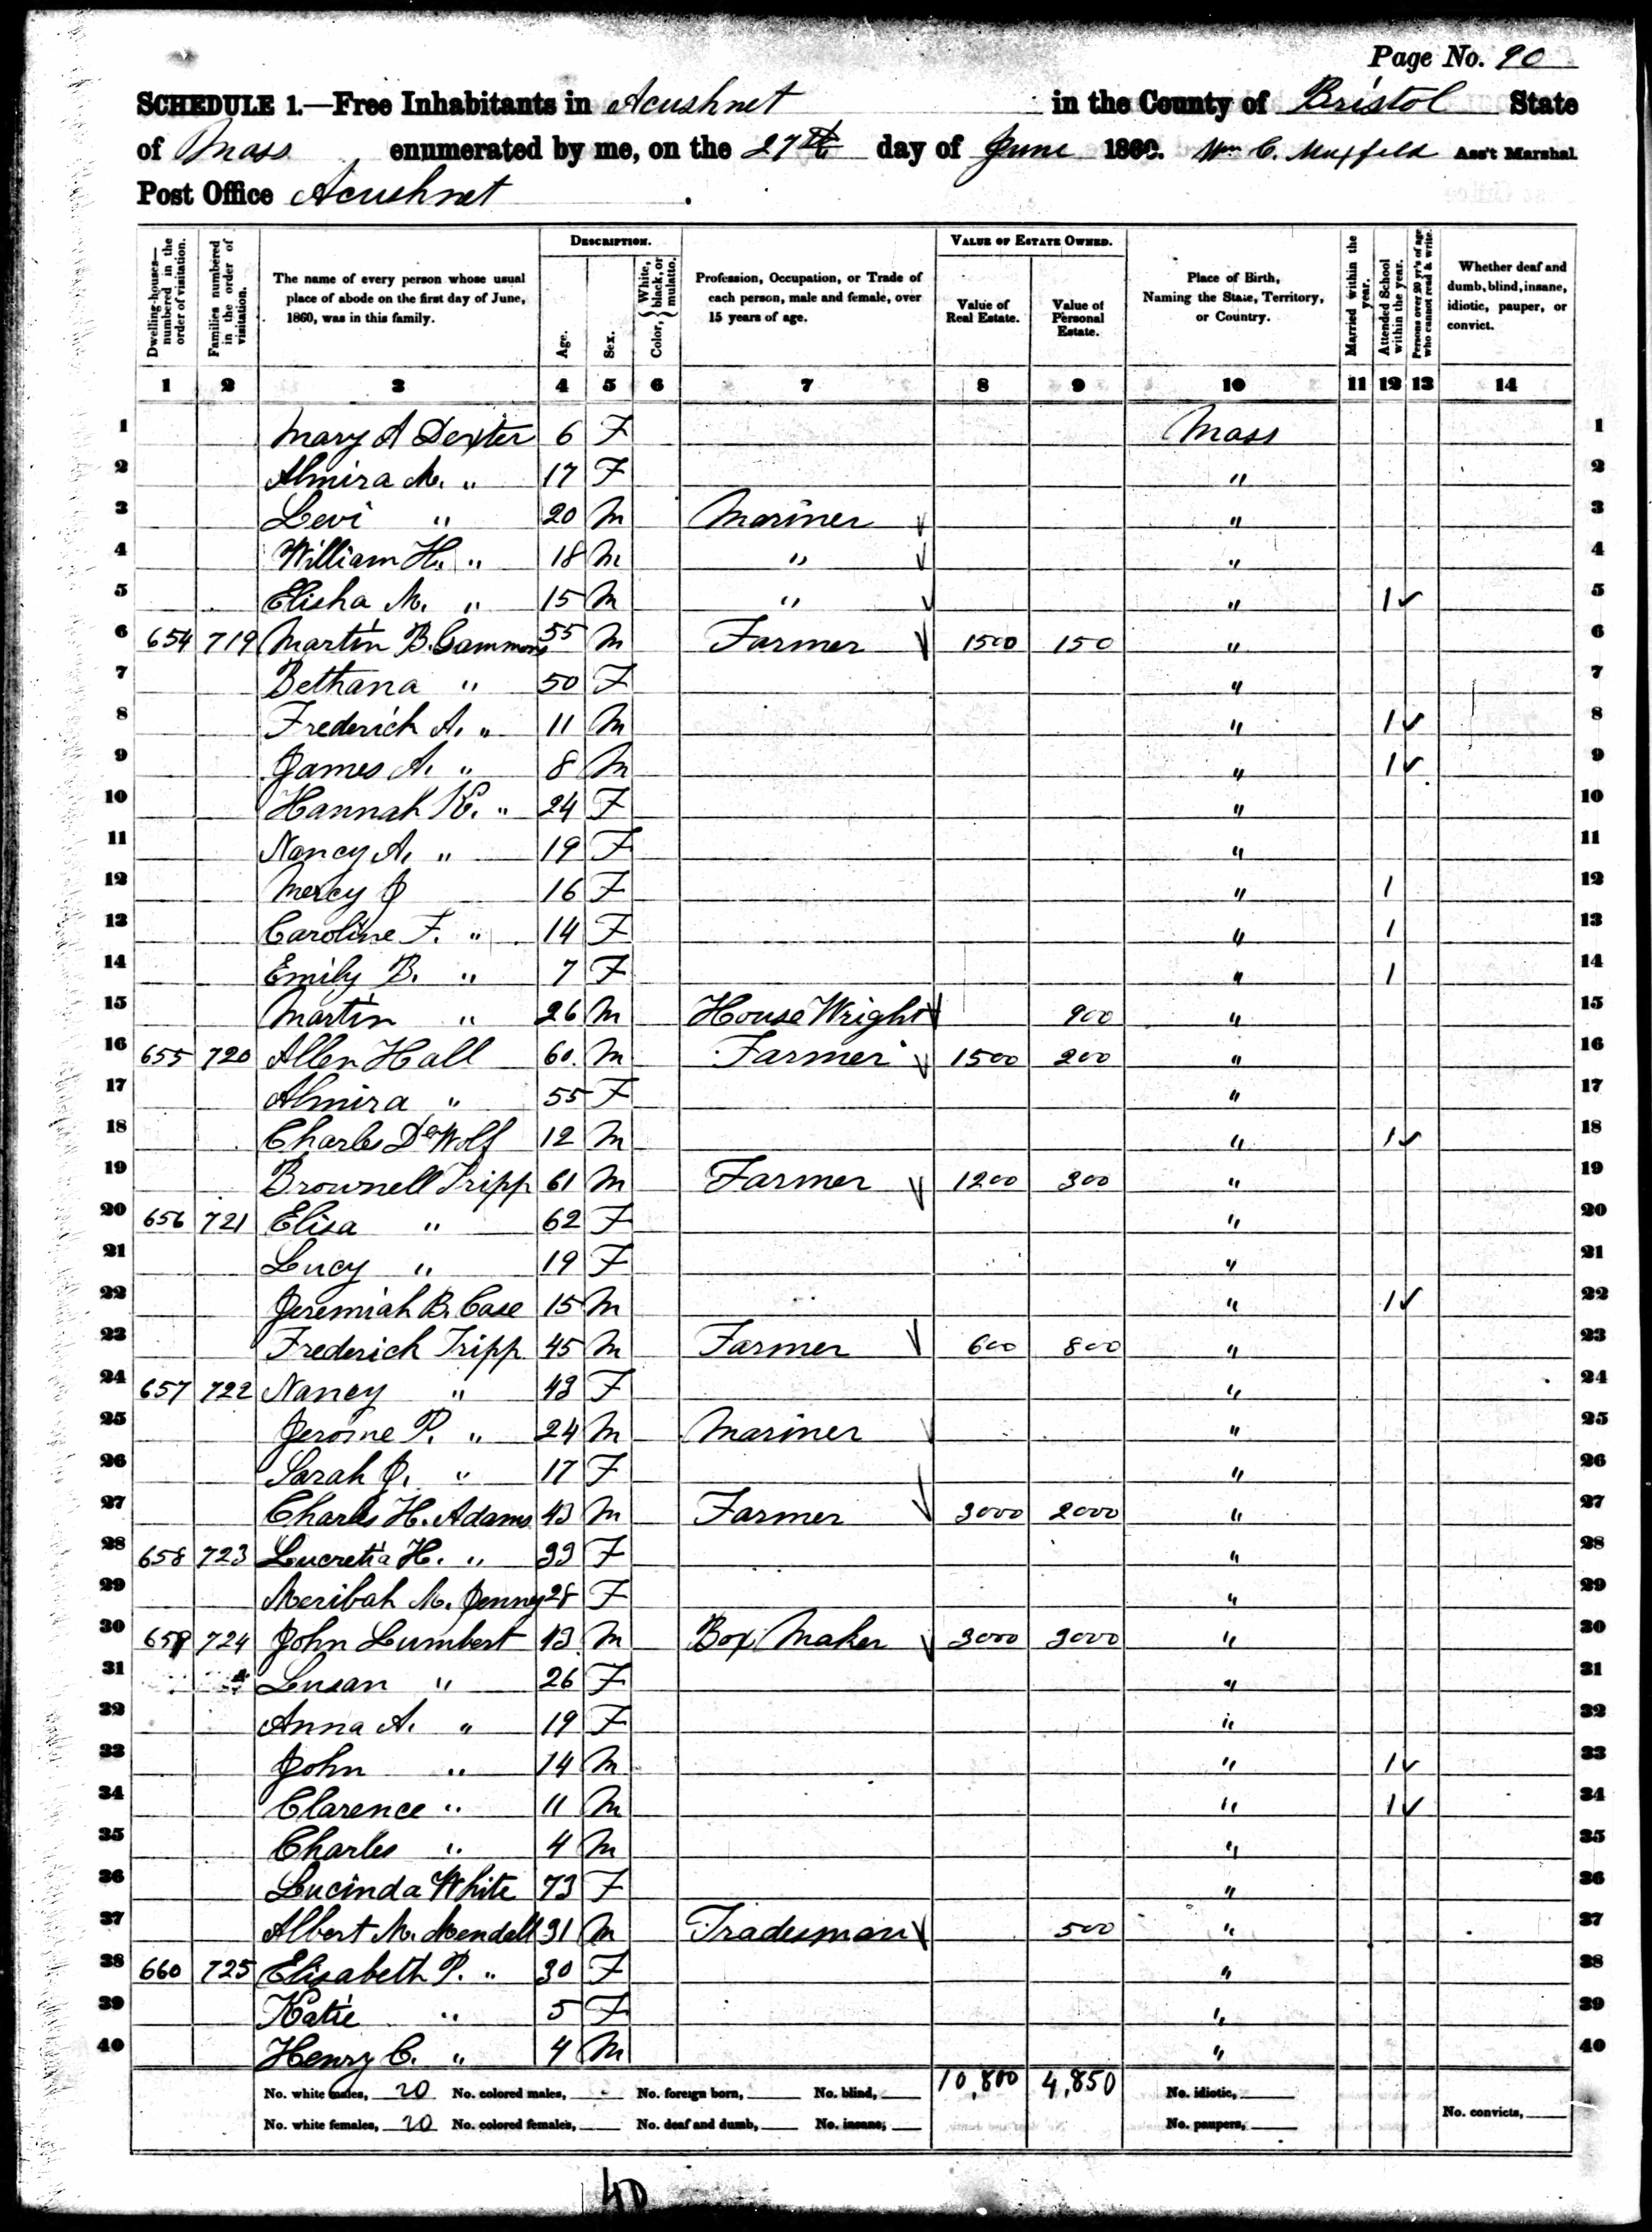 Page No. 90
SCHEDULE 1.—Free Inhabitants in Acushnet in the County of Bristol State
of Mass enumerated by me, on the 27th day of June 1860. Wm C. Ass't Marshal
Post Office Acushnet
Dwelling-houses— numbered in the order of visitation.
Families numbered in the order of visitation.
The name of every person whose usual place of abode on the first day of June, 1860, was in this family.
DESCRIPTION.
Age.
Sex.
Color, { White, black, or mulatto.
Profession, Occupation, or Trade of each person, male and female, over 15 years of age.
VALUE OF ESTATE OWNED.
Value of Real Estate.
Value of Personal Estate.
Place of Birth, Naming the State, Territory, or Country.
Married within the year.
Attended School within the year.
Persons over 20 y'rs of age who cannot read & write.
Whether deaf and dumb, blind, insane, idiotic, pauper, or convict.
1 2 3 4 5 6 7 8 9 10 11 12 13 14
1 Mary A Dexter 6 F Mass 1
2 Almira M. " 17 F " 2
3 Levi " 20 M Mariner ✓ " 3
4 William H. " 18 M " ✓ " 4
5 Elisha M. " 15 M " ✓ " 1 ✓ 5
6 654 719 Martin B. Gammons 55 M Farmer ✓ 1500 150 " 6
7 Bethana " 50 F " 7
8 Frederich A. " 11 M " 1 ✓ 8
9 James A. " 8 M " 1 ✓ 9
10 Hannah K. " 24 F " 10
11 Nancy A. " 19 F " 11
12 Mercy J 16 F " 1 12
13 Caroline F. " 14 F " 1 13
14 Emily B. " 7 F " 1 14
15 Martin " 26 M House Wright ✓ 900 " 15
16 655 720 Allen Hall 60 M Farmer ✓ 1500 200 " 16
17 Almira " 55 F " 17
18 Charles DeWolf 12 M " 1 ✓ 18
19 Brownell Tripp 61 M Farmer ✓ 1200 300 " 19
20 656 721 Elisa " 62 F " 20
21 Lucy " 19 F " 21
22 Jeremiah B. Case 15 M " 1 ✓ 22
23 Frederich Tripp 45 M Farmer ✓ 600 800 " 23
24 657 722 Nancy " 43 F " 24
25 Jerome P. " 24 M Mariner ✓ " 25
26 Sarah J. " 17 F " 26
27 Charles H. Adams 43 M Farmer ✓ 3000 2000 " 27
28 658 723 Lucretia H. " 33 F " 28
29 Meribah M. Jenny 28 F " 29
30 659 724 John Lumbert 43 M Box Maker ✓ 3000 3000 " 30
31 Susan " 26 F " 31
32 Anna A. " 19 F " 32
33 John " 14 M " 1 ✓ 33
34 Clarence " 11 M " 1 ✓ 34
35 Charles " 4 M " 35
36 Lucinda White 73 F " 36
37 Albert M. Mendell 31 M Tradesman ✓ 500 " 37
38 660 725 Elisabeth P. " 30 F " 38
39 Katie " 5 F " 39
40 Henry C. " 4 M " 40
No. white males, 20 No. colored males, No. foreign born, No. blind, 10,800 4,850 No. idiotic,
No. white females, 20 No. colored females, No. deaf and dumb, No. insane, No. paupers, No. convicts,
40